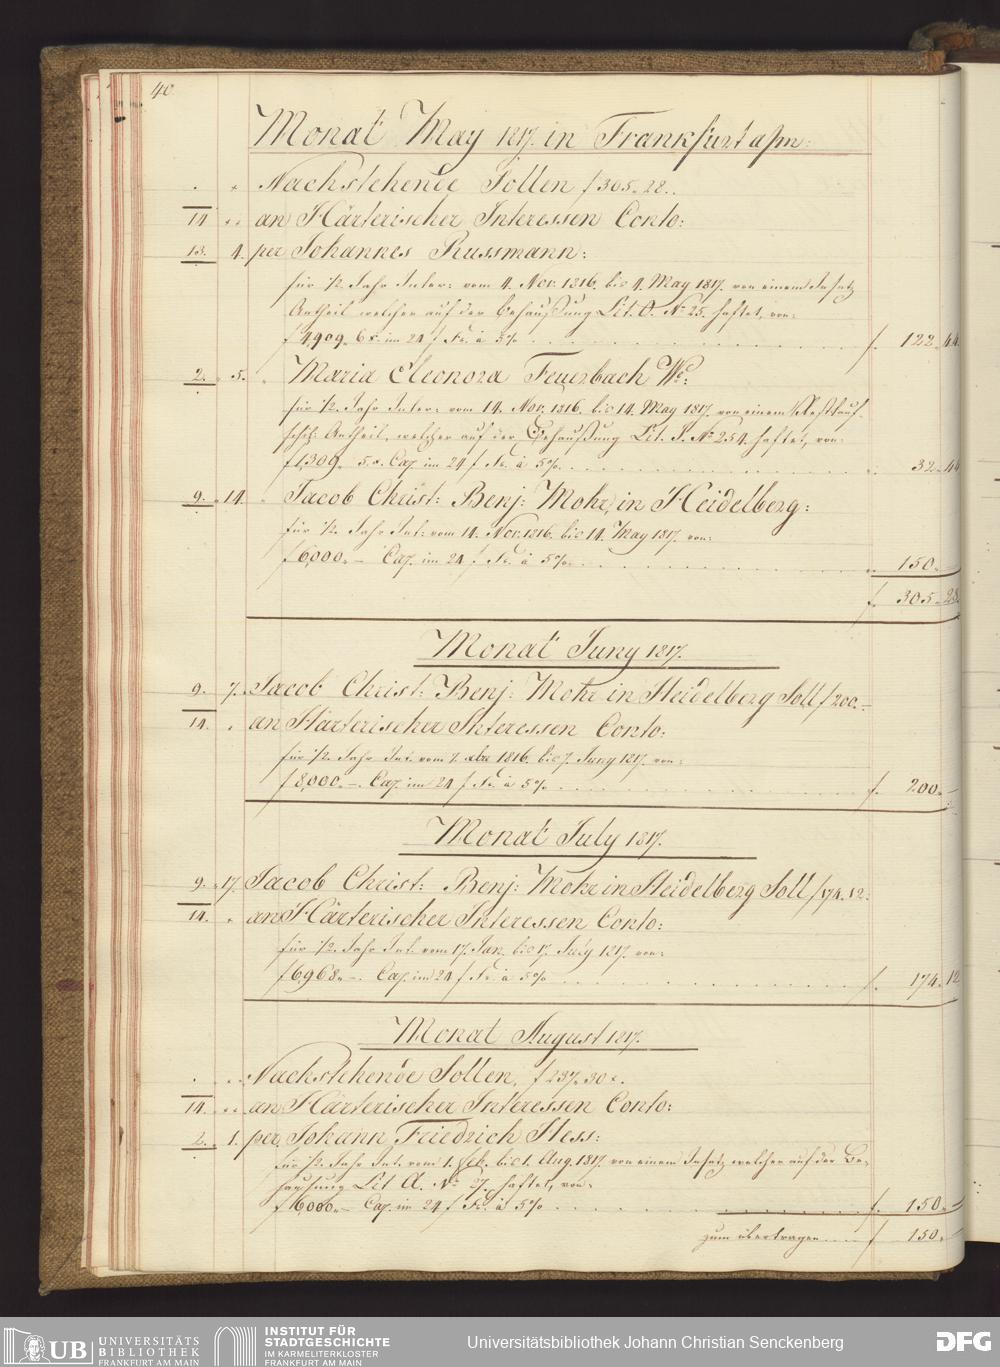 40.
Monat May 1817. in Frankfurt a/m:
Nachstehende Sollen f 305. 28..
14 an Härterischer Interessen Conto:
13. 4. per Johannes Russmann:
für ½ Jahr Inter: vom 4. Nov. 1816. bis 4. May 1817. von einem Insatz
Antheil welcher auf der Behaußung Lit. O. No 25. haftet, von:
f 4,909. 6 x. im 24 f Fs. à 5% f. 122. 44.
2. 5. Maria Eleonora Feuerbach We:
für ½ Jahr Inter: vom 14. Nov. 1816. bis 14. May 1817. von einem Restkauf-
schill: Antheil, welcher auf der Behaußung Lit. J. No 254. haftet, von:
f 1,309. 5 x. Cap. im 24 f Fs. à 5% 32. 44
9. 14. Jacob Christ: Benj: Mohr, in Heidelberg:
für ½ Jahr Int: vom 14. Nov. 1816. bis 14. May 1817. von:
f 6,000. — Cap. im 24 f Fs. à 5% 150. —
f. 305. 28.
Monat Juny 1817.
9. 7. Jacob Christ: Benj: Mohr in Heidelberg Soll f 200. —
14. an Härterischer Interessen Conto:
für ½ Jahr Int. vom 7. xbr 1816. bis 7. Juny 1817. von:
f 8,000. — Cap. im 24 f Fs. à 5% f. 200. —
Monat July 1817.
9. 17. Jacob Christ: Benj: Mohr in Heidelberg Soll f 174. 12.
14. an Härterischer Interessen Conto:
für ½ Jahr Int. vom 17. Jan. bis 17. July 1817. von:
f 6,968. — Cap. im 24 f Fs. à 5% f. 174. 12
Monat August 1817.
Nachstehende Sollen, f 237. 30 x.
14. an Härterischer Interessen Conto:
2. 1. per Johann Friedrich Hess:
für ½ Jahr Int. vom 1. Feb. bis 1. Aug. 1817. von einem Insatz welcher auf der Be-
hausung Lit A. No 27. haftet, von:
f 6,000. — Cap. im 24 f Fs. à 5% f. 150. —
zum übertragen f 150. —
UB UNIVERSITÄTS BIBLIOTHEK FRANKFURT AM MAIN
INSTITUT FÜR STADTGESCHICHTE IM KARMELITERKLOSTER FRANKFURT AM MAIN
Universitätsbibliothek Johann Christian Senckenberg
DFG